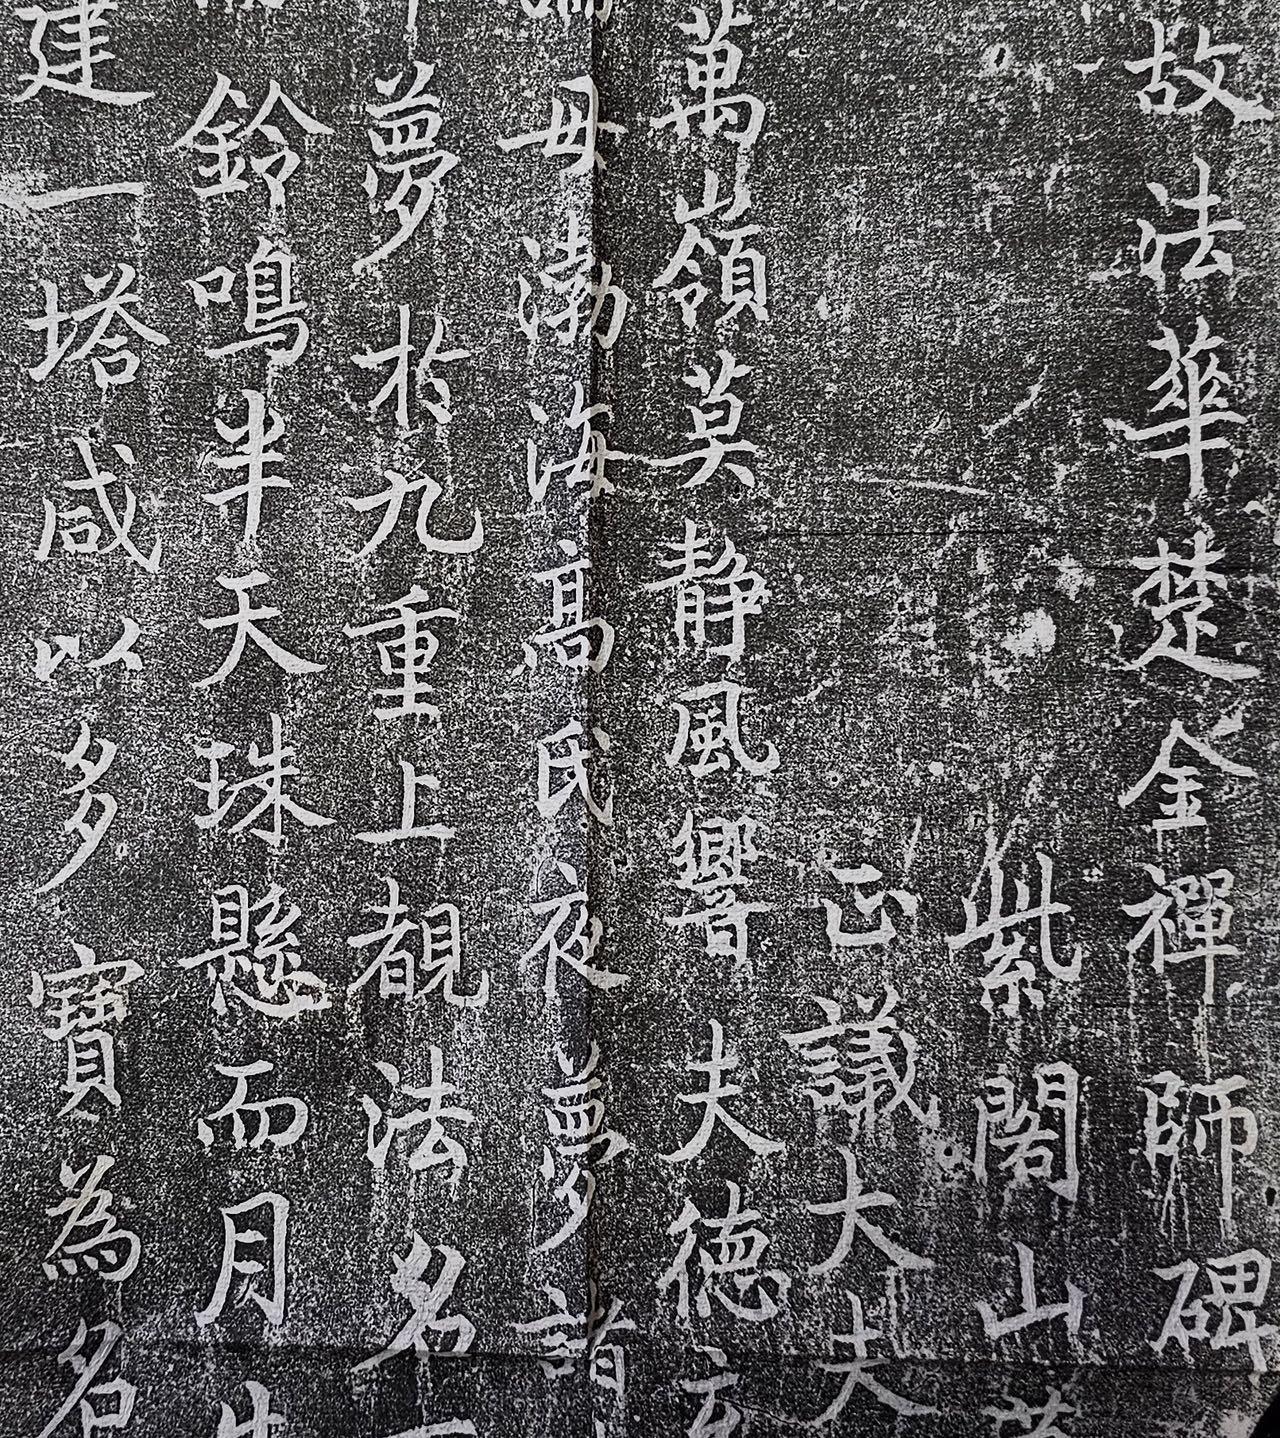 故法華楚金禪師碑
紫閣山草
正議大夫
萬嶺莫靜風響夫德
母渤海高氏夜夢諸
夢於九重上覩法名
鈴鳴半天珠懸而月
建一塔咸以多寶為名